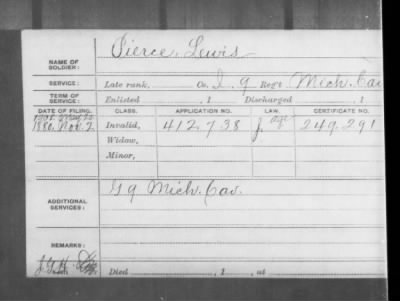 NAME OF SOLDIER: Pierce, Lewis
SERVICE: Late rank, Co. I, 9 Reg't Mich. Cav
TERM OF SERVICE: Enlisted , 1 Discharged , 1
DATE OF FILING. CLASS. APPLICATION NO. LAW. CERTIFICATE NO.
1880. Nov. 2. Invalid, 412.738 249.291
Widow,
Minor,
ADDITIONAL SERVICES: G 9 Mich. Cav.
REMARKS:
Died , 1 , at